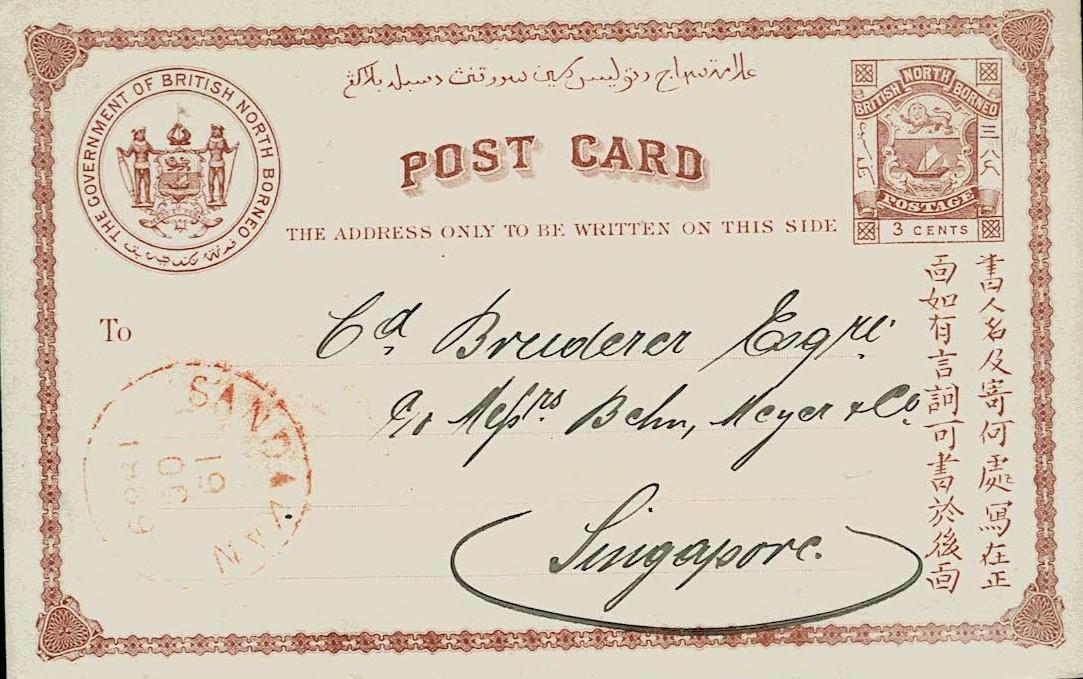 THE GOVERNMENT OF BRITISH NORTH BORNEO
POST CARD
THE ADDRESS ONLY TO BE WRITTEN ON THIS SIDE
BRITISH NORTH BORNEO
三八
POSTAGE
3 CENTS
書人名及寄何處寫在正
面如有言詞可書於後面
To
Cd Bruderer Esqre
c/o Messrs Behn, Meyer & Co
Singapore.
SANDAKAN
1889